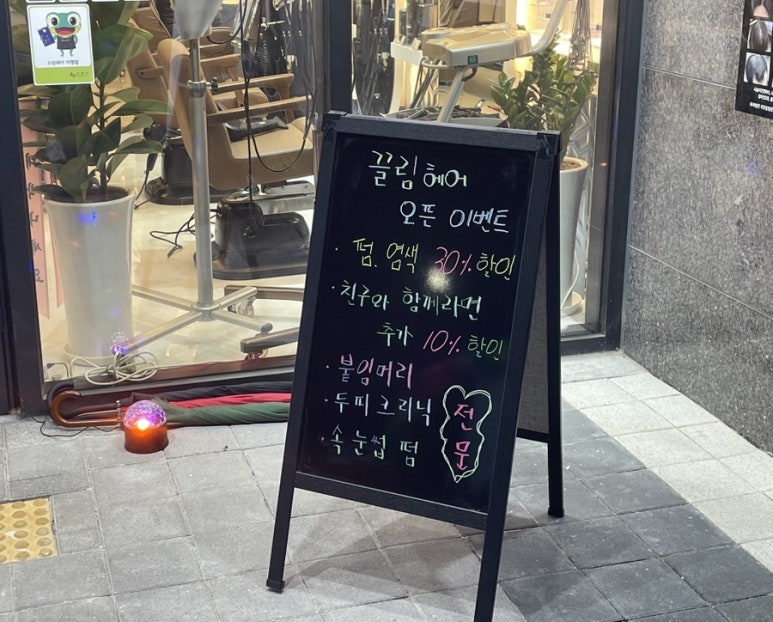 끌림헤어
오픈 이벤트
· 펌. 염색 30% 할인
· 친구와 함께라면
추가 10% 할인
· 붙임머리
· 두피크리닉
· 속눈썹 펌
전문